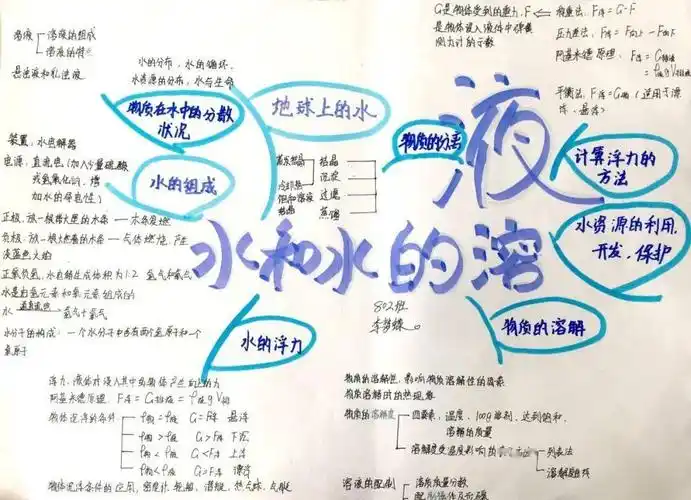 溶液 溶液的组成
溶液的特点
悬浊液和乳浊液
水的分布、水的循环、
水资源的分布、水与生命
物质在水中的分散
状况
地球上的水
G是物体受到的重力,F
是物体浸入液体中弹簧
测力计的示数
称重法:F浮=G-F
压力差法:F浮=F向上-F向下
阿基米德原理:F浮=G排液
=ρ液gV排液
平衡法:F浮=G物(适用于漂
浮、悬浮)
物质的分离
蒸发结晶
冷却热
饱和溶液
结晶
结晶
沉淀
过滤
蒸馏
计算浮力的
方法
水资源的利用、
开发、保护
装置:水电解器
电源:直流电(加入少量硫酸
或氢氧化钠,增
加水的导电性)
水的组成
正极:放一根带火星的木条——木条复燃
负极:放一根燃着的木条——气体燃烧,产生
淡蓝色火焰
正氧负氢,水电解生成体积为1:2
水是由氢元素和氧元素组成的
水 直流电 氢气+氧气
水分子的构成:一个水分子中含有两个氢原子和一个
氧原子
液
水和水的溶
802班
水的浮力
物质的溶解
浮力:液体对浸入其中的物体产生向上的力
阿基米德原理 F浮=G排液=ρ液gV排
物体沉浮的条件
ρ物=ρ液 G=F浮 悬浮
ρ物>ρ液 G>F浮 下沉
ρ物<ρ液 G<F浮 上浮
ρ物<ρ液 G=F浮 漂浮
物体沉浮条件的应用:密度计、轮船、潜艇、热气球、气艇
物质的溶解性,影响物质溶解性的因素
物质溶解时的热现象
物质的溶解度 四要素:温度、100g溶剂、达到饱和、
溶解的质量
溶解度受温度影响的表示方法 列表法
溶解度曲线
溶液的配制 溶质质量分数